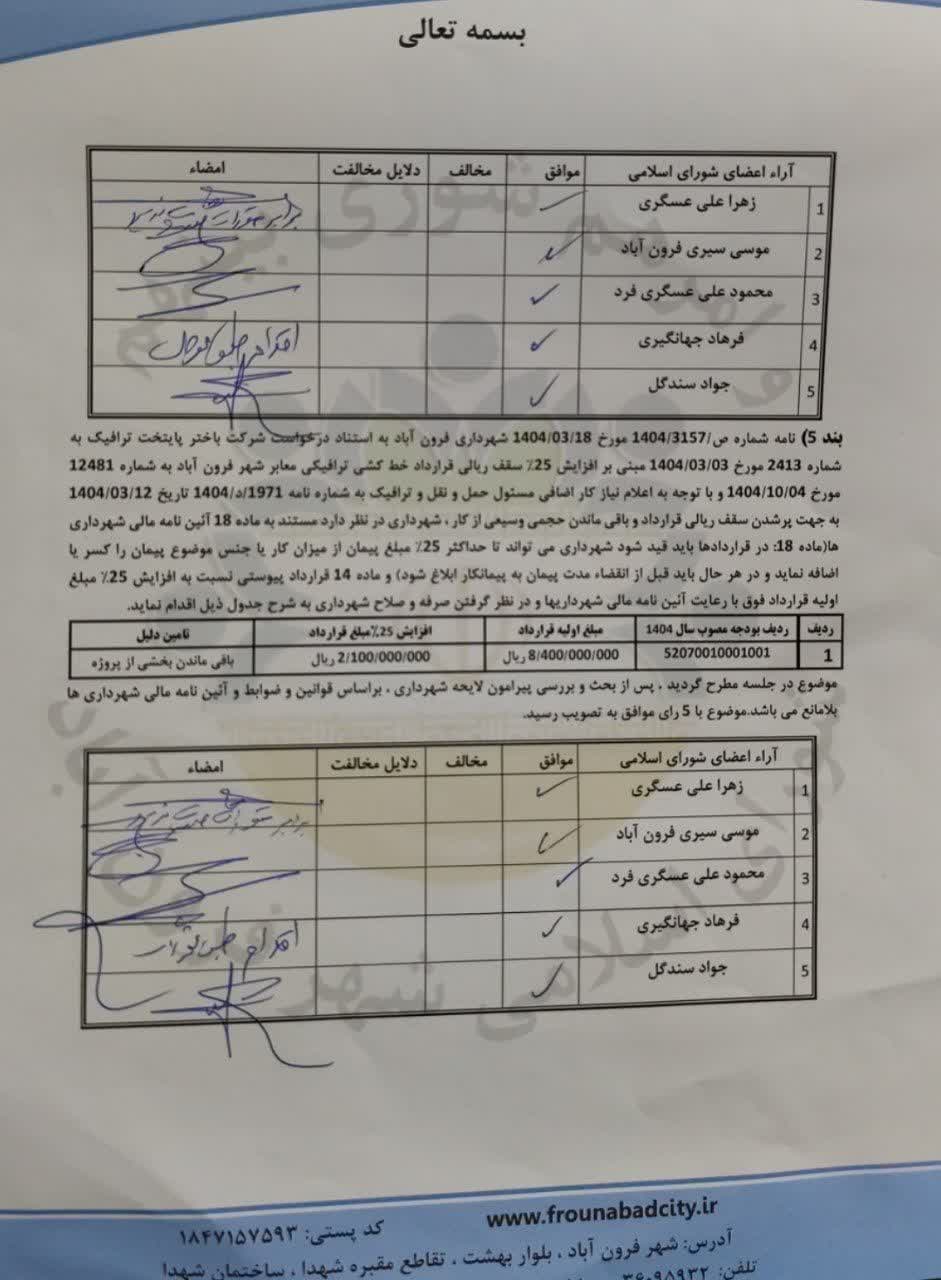 بسمه تعالی
آراء اعضای شورای اسلامی موافق مخالف دلایل مخالفت امضاء
1 زهرا علی عسگری
2 موسی سیری فرون آباد
3 محمود علی عسگری فرد
4 فرهاد جهانگیری
5 جواد سندگل
بند 5) نامه شماره ص/1404/3157 مورخ 1404/03/18 شهرداری فرون آباد به استناد درخواست شرکت باختر پایتخت ترافیک به
شماره 2413 مورخ 1404/03/03 مبنی بر افزایش 25٪ سقف ریالی قرارداد خط کشی ترافیکی معابر شهر فرون آباد به شماره 12481
مورخ 1404/10/04 و با توجه به اعلام نیاز کار اضافی مسئول حمل و نقل و ترافیک به شماره نامه 1971/د/1404 تاریخ 1404/03/12
به جهت پرشدن سقف ریالی قرارداد و باقی ماندن حجمی وسیعی از کار ، شهرداری در نظر دارد مستند به ماده 18 آئین نامه مالی شهرداری
ها(ماده 18: در قراردادها باید قید شود شهرداری می تواند تا حداکثر 25٪ مبلغ پیمان از میزان کار یا جنس موضوع پیمان را کسر یا
اضافه نماید و در هر حال باید قبل از انقضاء مدت پیمان به پیمانکار ابلاغ شود) و ماده 14 قرارداد پیوستی نسبت به افزایش 25٪ مبلغ
اولیه قرارداد فوق با رعایت آئین نامه مالی شهرداریها و در نظر گرفتن صرفه و صلاح شهرداری به شرح جدول ذیل اقدام نماید.
ردیف ردیف بودجه مصوب سال 1404 مبلغ اولیه قرارداد افزایش 25٪مبلغ قرارداد تامین دلیل
1 52070010001001 8/400/000/000 ریال 2/100/000/000 ریال باقی ماندن بخشی از پروژه
موضوع در جلسه مطرح گردید ، پس از بحث و بررسی پیرامون لایحه شهرداری ، براساس قوانین و ضوابط و آئین نامه مالی شهرداری ها
بلامانع می باشد.موضوع با 5 رای موافق به تصویب رسید.
آراء اعضای شورای اسلامی موافق مخالف دلایل مخالفت امضاء
1 زهرا علی عسگری
2 موسی سیری فرون آباد
3 محمود علی عسگری فرد
4 فرهاد جهانگیری
5 جواد سندگل
www.frounabadcity.ir
کد پستی: ۱۸۴۷۱۵۷۵۹۳
آدرس: شهر فرون آباد ، بلوار بهشت ، تقاطع مقبره شهدا ، ساختمان شهدا
تلفن: ۳۶۰۹۵۹۳۲